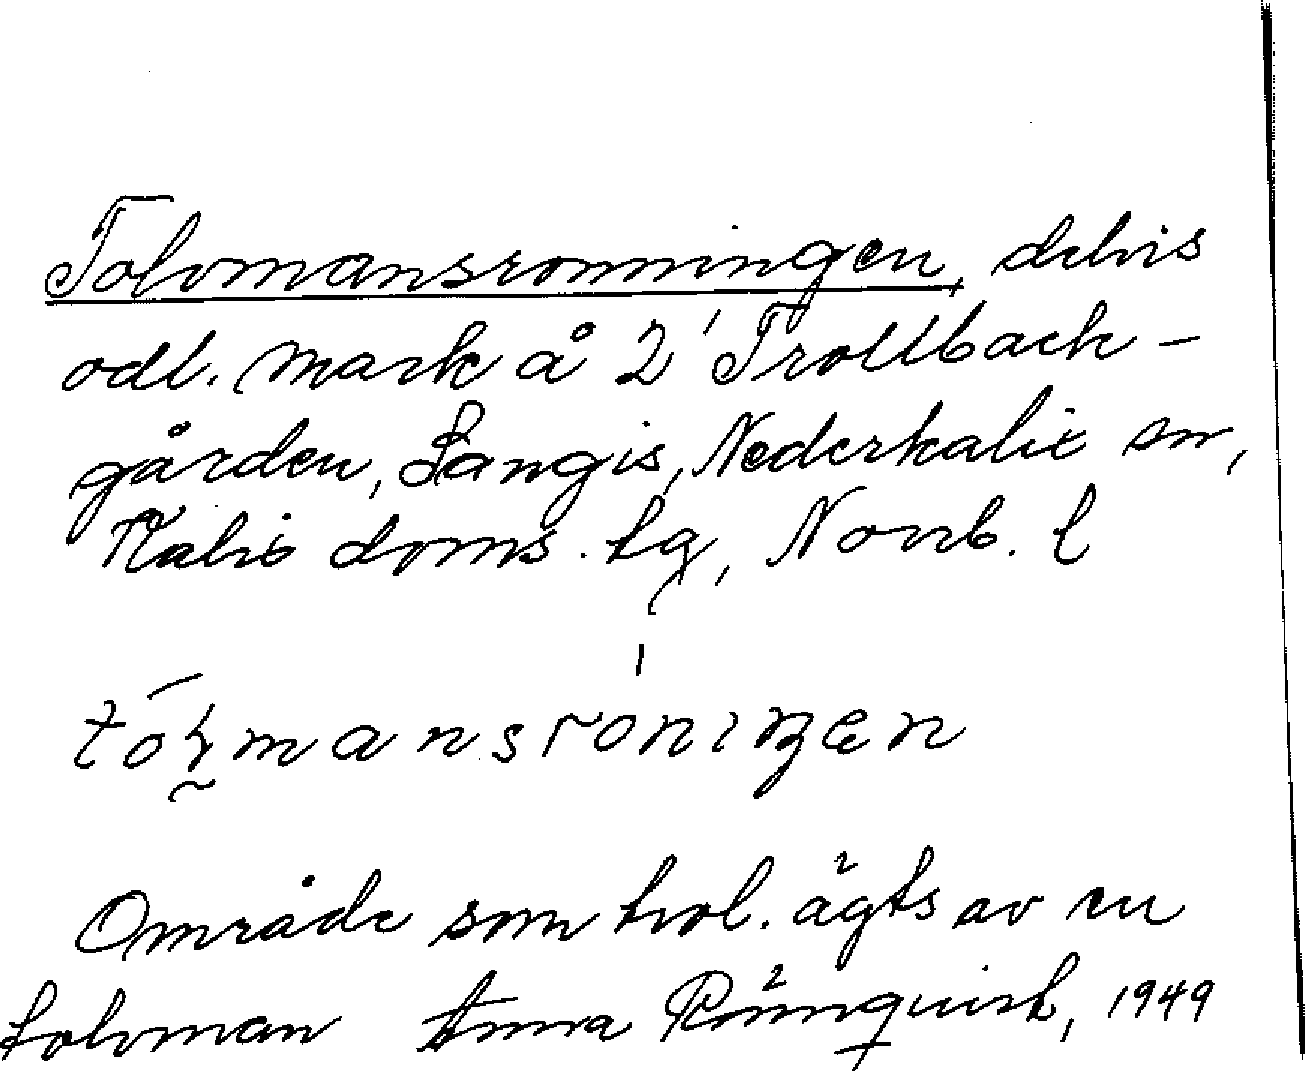 Tolvmansronningen, delvis
odl. mark å 2' Trollback-
gården, Sangis, Nederkalix sn,
Kalix doms. tg, Norrb. l
Område som trol. ägts av en
tolvman Anna Rönnquist, 1949